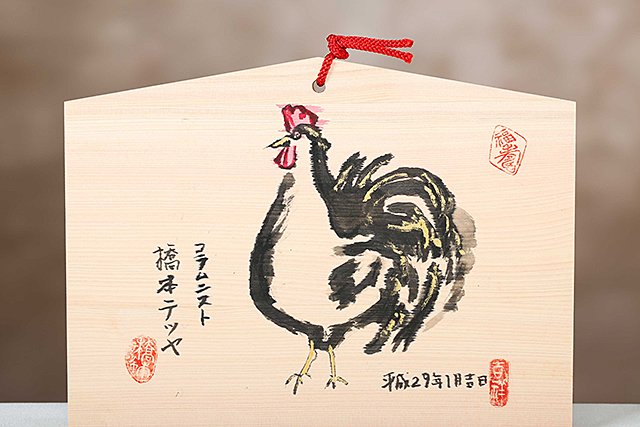 コラムニスト
橋本テツヤ
平成29年1月吉日